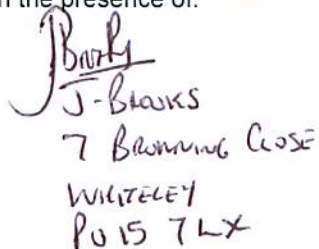 in the presence of:
J-Brooks
7 Browning Close
Whiteley
PO15 7LX